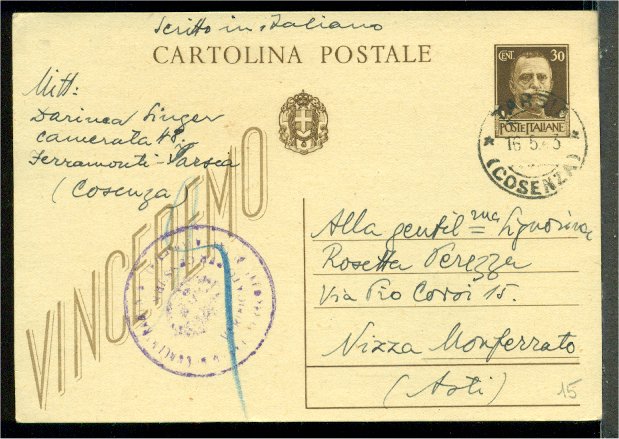 Scritto in italiano
CARTOLINA POSTALE
CENT. 30
POSTE ITALIANE
TARSIA
16.5.43
(COSENZA)
Mitt:
Darinca Singer
Camerata 48.
Ferramonti-Tarsia
(Cosenza)
VINCEREMO
Alla gentil=ma Signorina
Rosetta Perezza
Via Pio Corsi 15.
Nizza Monferrato
(Asti)
15